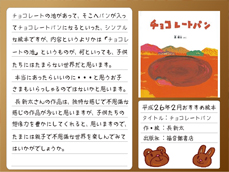 チョコレートの池があって、そこへパンが入っ
てチョコレートパンになるといった、シンプル
な絵本ですが、内容というよりかは『チョコレ
ートの池』というものが、何といっても、子供
たちにはたまらない世界だと思います。
本当にあったらいいのに・・・と思うお子
さまもいらっしゃるのではないかと思います。
長新太さんの作品は、独特な感じで不思議な
感じの作品が多いと思いますが、子供たちの
想像力を豊かにしてくれると、思いますので、
たまには親子で不思議な世界を楽しんでみて
はいかがでしょうか。
チョコレートパン
長新太
平成26年2月おすすめ絵本
タイトル：チョコレートパン
作・絵：長 新太
出版社：福音館書店